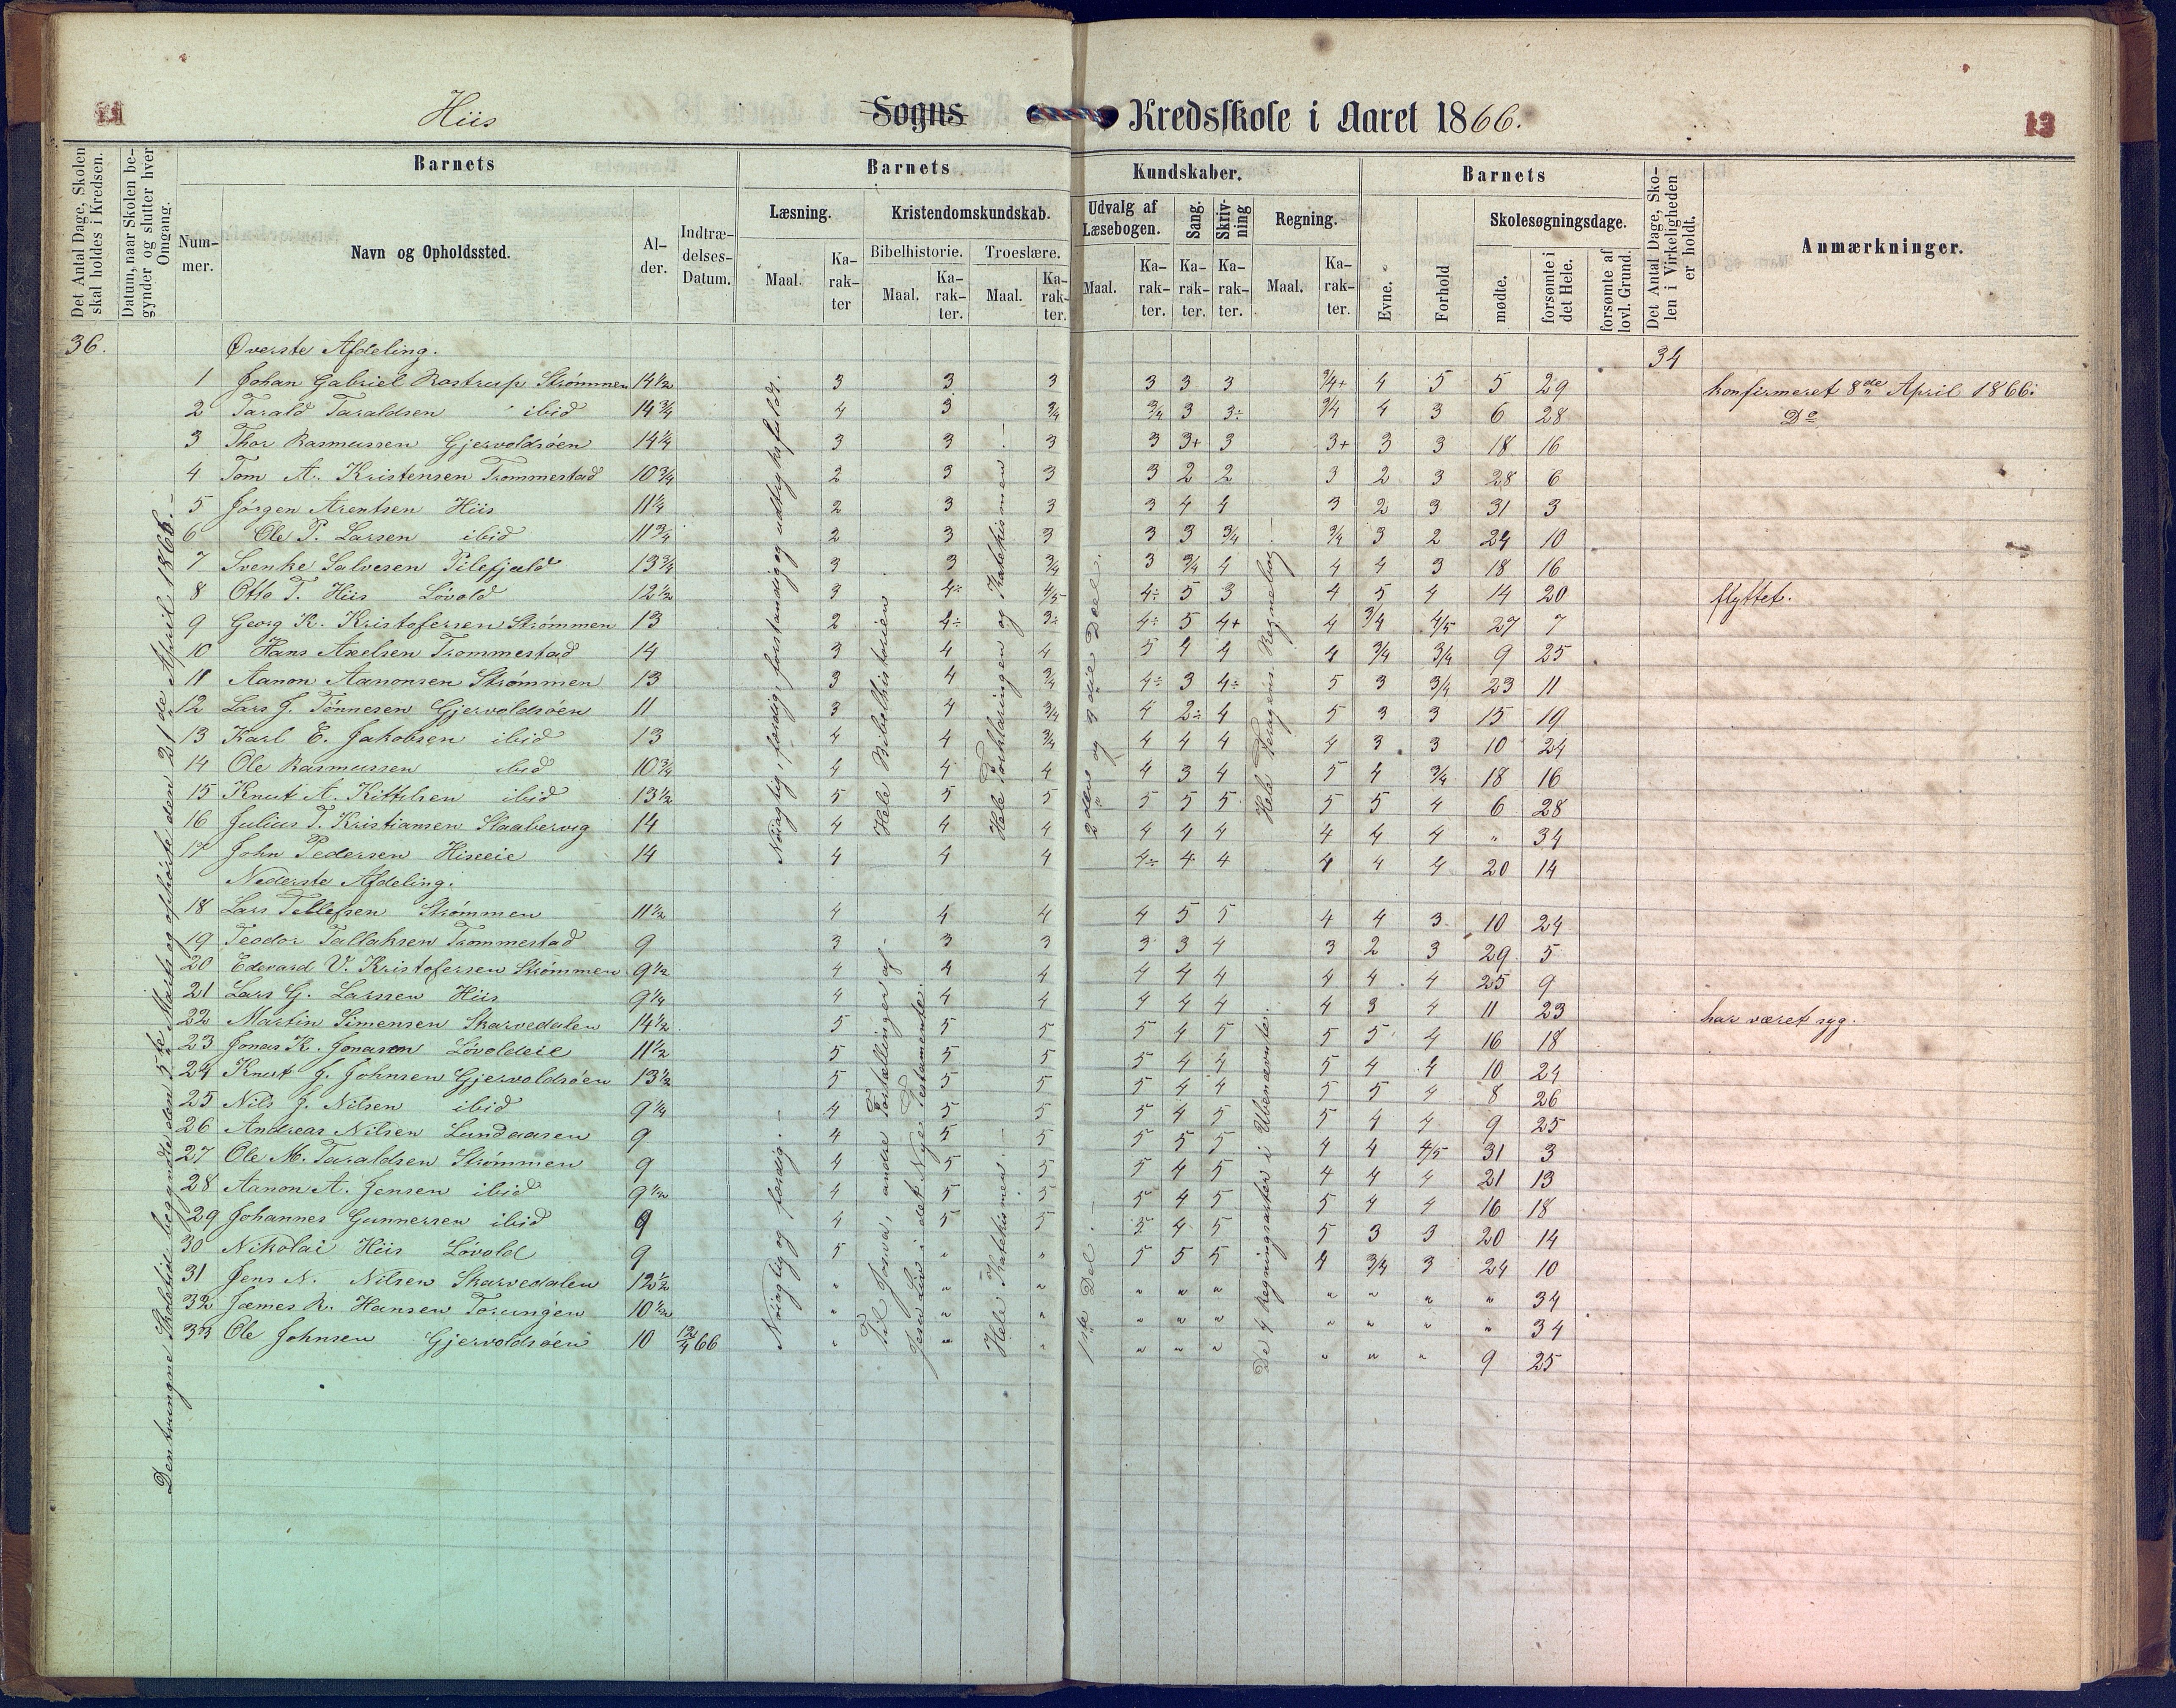 11
Hiis Sogns Kredsskole i Aaret 1866.
13
Det Antal Dage, Skolen skal holdes i Kredsen.
Datum, naar Skolen begynder og slutter hver Omgang.
Barnets
Nummer.
Navn og Opholdssted.
Alder.
Indtrædelses-Datum.
Barnets Kundskaber.
Læsning.
Maal.
Karakter
Kristendomskundskab.
Bibelhistorie.
Maal.
Karakter.
Troeslære.
Maal.
Karakter.
Udvalg af Læsebogen.
Maal.
Karakter.
Sang.
Karakter.
Skrivning
Karakter.
Regning.
Maal.
Karakter.
Barnets
Evne.
Forhold
Skolesøgningsdage.
mødte.
forsømte i det Hele.
forsømte af lovl. Grund.
Det Antal Dage, Skolen i Virkeligheden er holdt.
Anmærkninger.
36.
Den tvungne Skoletid begyndte den 5te Marts og ophörte den 21de April 1866.-
Nöiagtig, færdig, forstandig og udtryksfuldt.
Hele Bibelhistorien
Hele Forklaringen og Katekismen.-
2den og 3die Deel.
Hele Vengens Regnebog.-
Øverste Afdeling. 34
1 Johan Gabriel Rostrup Strömmen 14½ 3 3 3 3 3 3 3/4+ 4 5 5 29 konfirmeret 8de April 1866.
2 Tarald Taraldsen ibid 14¾ 4 3 3/4 3/4 3 3÷ 3/4 4 3 6 28 Do
3 Thor Rasmussen Gjervoldsöen 14¼ 3 3 3 3 3+ 3 3+ 3 3 18 16
4 Tom A. Kristensen Trommestad 10¾ 2 3 3 3 2 2 3 2 3 28 6
5 Jörgen Arentsen Hiis 11¼ 2 3 3 3 4 4 3 2 3 31 3
6 Ole P. Larsen ibid 11¾ 2 3 3 3 3 3/4 3/4 3 2 24 10
7 Svenke Salvesen Pilefjæld 13¾ 3 3 3/4 3 3/4 4 4 4 3 18 16
8 Otto T. Hiis Lövold 12½ 3 4÷ 4/5 4÷ 5 3 4 5 4 14 20 flyttet.
9 Georg K. Kristofersen Strömmen 13 2 4÷ 3÷ 4÷ 5 4+ 4 3/4 4/5 27 7
10 Hans Axelsen Trommestad 14 3 4 4 5 4 4 4 3/4 3/4 9 25
11 Aanon Aanonsen Strömmen 13 3 4 3/4 4÷ 3 4÷ 5 3 3/4 23 11
12 Lars J. Tönnesen Gjervoldsöen 11 3 4 3/4 4 2÷ 4 5 3 3 15 19
13 Karl E. Jakobsen ibid 13 4 4 3/4 4 4 4 4 3 3 10 24
14 Ole Rasmussen ibid 10¾ 4 4 4 4 3 4 5 4 3/4 18 16
15 Knut A. Kittelsen ibid 13½ 5 5 5 5 5 5 5 5 4 6 28
16 Julius T. Kristiansen Staabervig 14 4 4 4 4 4 4 4 4 4 " 34
17 John Pedersen Hiseeie 14 4 4 4 4÷ 4 4 4 4 4 20 14
Nederste Afdeling.
Nöiagtig og færdig.-
Til Josva, andre Fortællinger af Jesu Liv i det Nye Testamente.
Hele Katekismen.-
1ste Del.-
De 4 Regningsarter i Ubenævnte.
18 Lars Tellefsen Strömmen 11½ 4 4 4 4 5 5 4 4 3 10 24
19 Teodor Tallaksen Trommestad 9 3 3 3 3 3 4 3 2 3 29 5
20 Edevard V. Kristofersen Strömmen 9½ 4 4 4 4 4 4 4 4 4 25 9
21 Lars G. Larssen Hiis 9¼ 4 4 4 4 4 4 4 3 4 11 23 har været syg.
22 Martin Simensen Skarvedalen 14½ 5 5 5 5 4 5 5 5 4 16 18
23 Jonas K. Jonasen Lövoldeie 11½ 5 5 5 5 4 4 5 4 4 10 24
24 Knut J. Johnsen Gjervoldsöen 13½ 5 5 5 5 4 4 5 5 4 8 26
25 Nils J. Nilsen ibid 9¼ 4 5 5 5 4 5 5 4 4 9 25
26 Andreas Nilsen Lundaasen 9 4 5 5 5 5 5 4 4 4/5 31 3
27 Ole M. Taraldsen Strömmen 9 4 5 5 5 4 5 4 4 4 21 13
28 Aanon A. Jensen ibid 9½ 4 5 5 5 4 5 5 4 4 16 18
29 Johannes Gunnersen ibid 9 4 5 5 5 4 5 5 3 3 20 14
30 Nikolai Hiis Lövold 9 5 " " 5 5 5 4 3/4 3 24 10
31 Jens N. Nilsen Skarvedalen 12½ " " " " " " " " " " 34
32 James R. Hansen Torungen 10½ " " " " " " " " " " 34
33 Ole Johnsen Gjervoldsöen 10 12/4 66 " " " " " " " " " 9 25